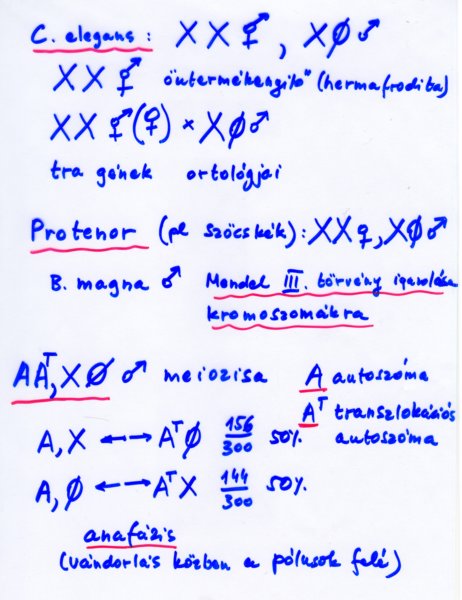 C. elegans: XX ⚥, XØ ♂
XX ⚥ öntermékenyítő" (hermafrodita)
XX ⚥(♀) × XØ ♂
tra gének ortológjai
Protenor (pl szöcskék): XX ♀, XØ ♂
B. magna ♂ Mendel III. törvény igazolása
kromoszómákra
AAᵀ, XØ ♂ meiozisa A autoszóma
Aᵀ transzlokációs
autoszóma
A, X ←→ AᵀØ 156/300 50%
A, Ø ←→ AᵀX 144/300 50%.
anafázis
(vándorlás közben a pólusok felé)